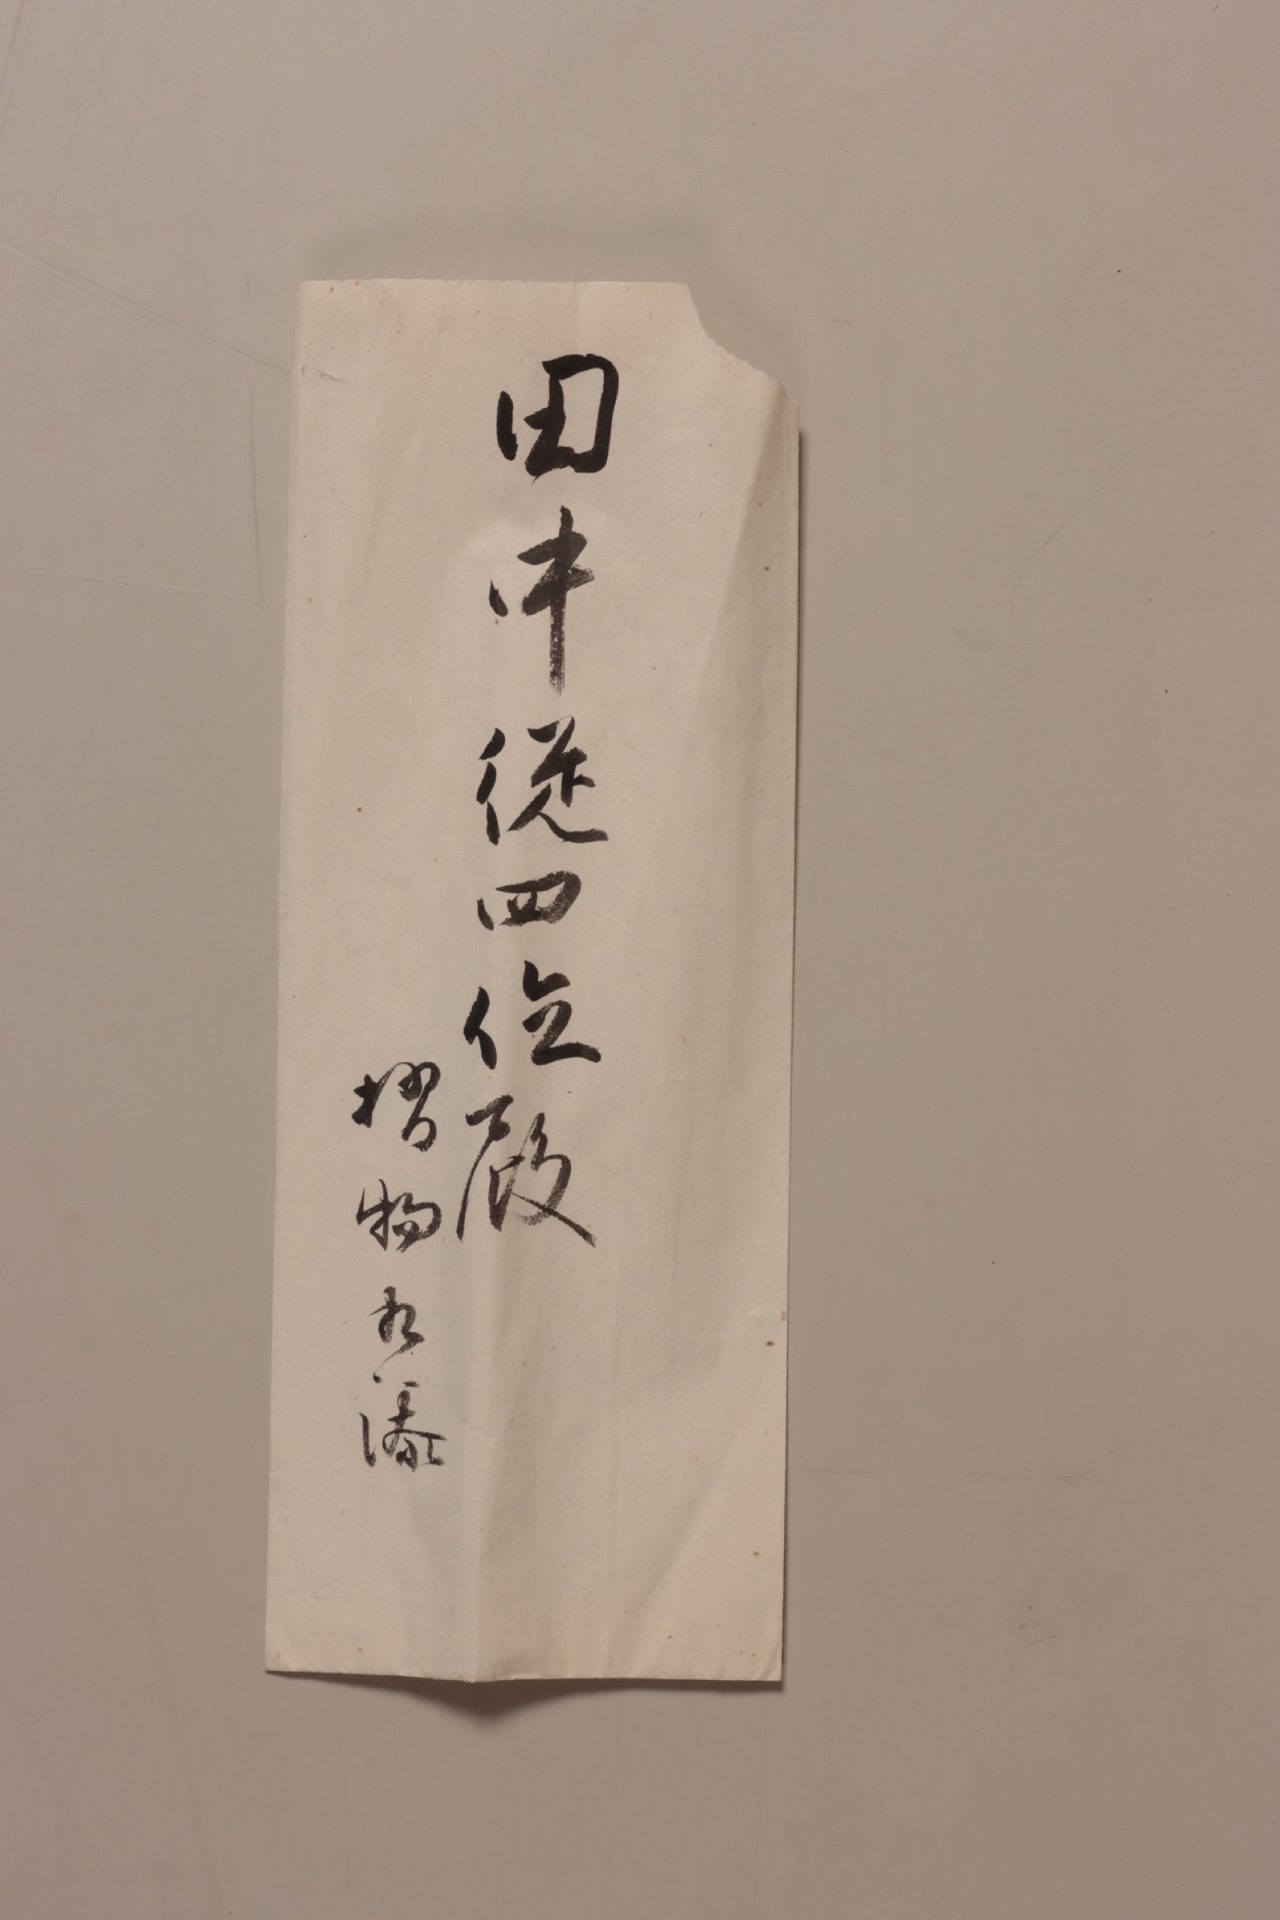 田中従四位殿
摺物相添